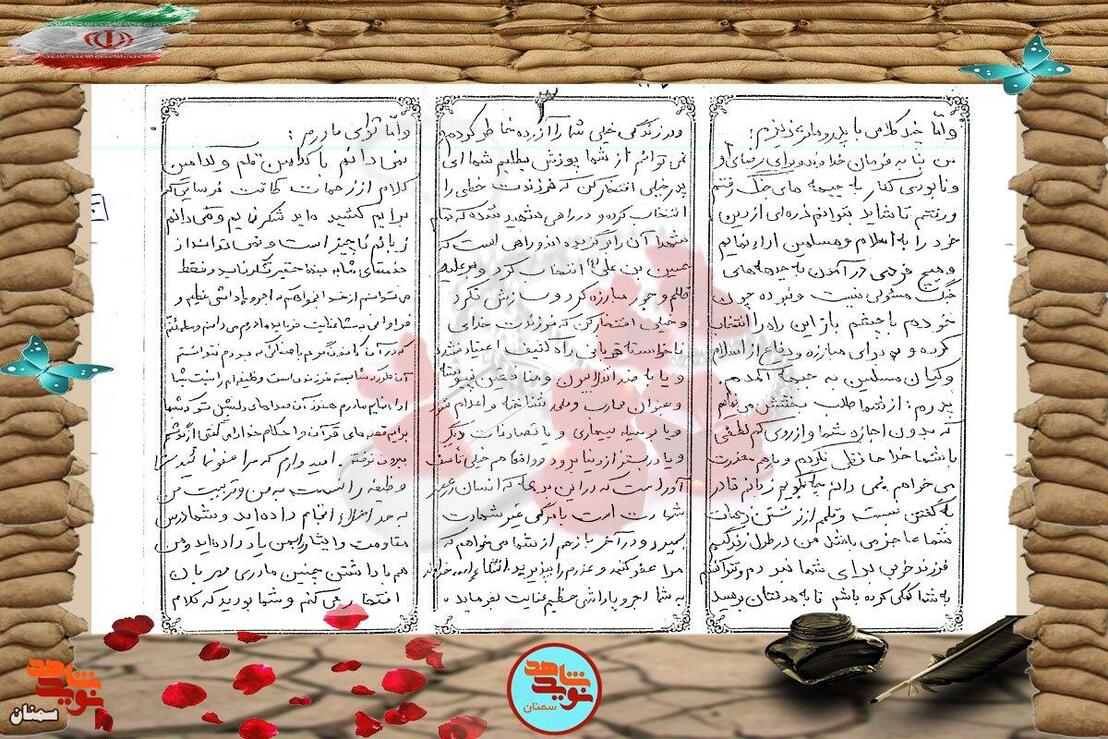 ۳
و اما چند کلامی با پدر و مادر عزیزم:
من بنا به فرمان خداوند و برای رضای او
و نابودی کفار به جبهه های جنگ رفتم
و رفتم تا شاید بتوانم ذره ای از دین
خود را به اسلام و مسلمین ادا نمایم
و هیچ فردی در آمدن به جبهه های
جنگ مسئول نیست و نبوده چون
خودم با چشم باز این راه را انتخاب
کرده و برای مبارزه و دفاع از اسلام
و کیان مسلمین به جبهه آمدم
پدرم: از شما طلب بخشش می نمایم
که بدون اجازه شما و از روی کم لطفی
با شما خداحافظی نکردم و باز هم معذرت
می خواهم نمی دانم چه بگویم زبانم قادر
به گفتن نیست و قلم از نوشتن زحمات
شما عاجز می باشد من در طول زندگیم
فرزند خوبی برای شما نبودم و نتوانستم
به شما کمکی کرده باشم تا به هدفتان برسید
و در زندگی خیلی شما را آزرده خاطر کردم
نمی توانم از شما پوزش بطلبم شما ای
پدر خیلی افتخار کن که فرزندت خطی را
انتخاب کرده و در راهی شهید شده که تمام
شهدا آن را برگزیده اند و راهی است که
حسین بن علی (ع) انتخاب کرد و بر علیه
ظلم و جور مبارزه کرد و سازش نکرد
و خیلی افتخار کن که فرزندت خدای
ناخواسته جزء آنی به راه کشیده اعتیاد نشد
و یا به ضد انقلابیون و منافقین نپیوست
و بعنوان محارب و مفسد شناخته و اعدام نشد
و یا بر اثر بیماری و یا تصادفات دیگر
و یا در بستر از دنیا برود و واقعا هم خیلی تأسف
آور است که در این برهه که انسان در مسیر
شهادت است با مرگی غیر شهادت
بمیرد و در آخر باز هم از شما می خواهم که
مرا عفو کنید و عذرم را بپذیرید انشاءالله خداوند
به شما اجر و پاداشی عظیم عنایت بفرماید
و اما تو ای مادرم:
نمی دانم با کدامین قلم و کدامین
کلام از زحمات طاقت فرسایی که
برایم کشیده اید تشکر نمایم و نمی دانم
زبانم ناچیز است و نمی تواند از
خدمتهای شما به بنده حقیر تشکر نماید و فقط
می توانم از خدا بخواهم که اجر و پاداشی عظیم و
فراوانی به شما عنایت فرماید مادرم می دانم
که در آن
آن طور که شایسته فرزندی است وظیفه ام را نسبت به شما
ادا نمایم مادرم هنوز آن صداهای دلنشین تو که شبها
برایم قصه های قرآن و احکام خدا را می گفتی از گوشم
بیرون نرفته و امیدوارم که مرا عفو نمائید شما
وظیفه را نسبت به من و تربیت من
به حد اعلا انجام داده اید و شما درس
مقاومت و ایثار را به من یاد داده اید و من
هم با داشتن چنین مادری مهربان
افتخار می کنم و شما بودید که کلام
شاهد
نوید
سمنان
نوید شاهد
سمنان